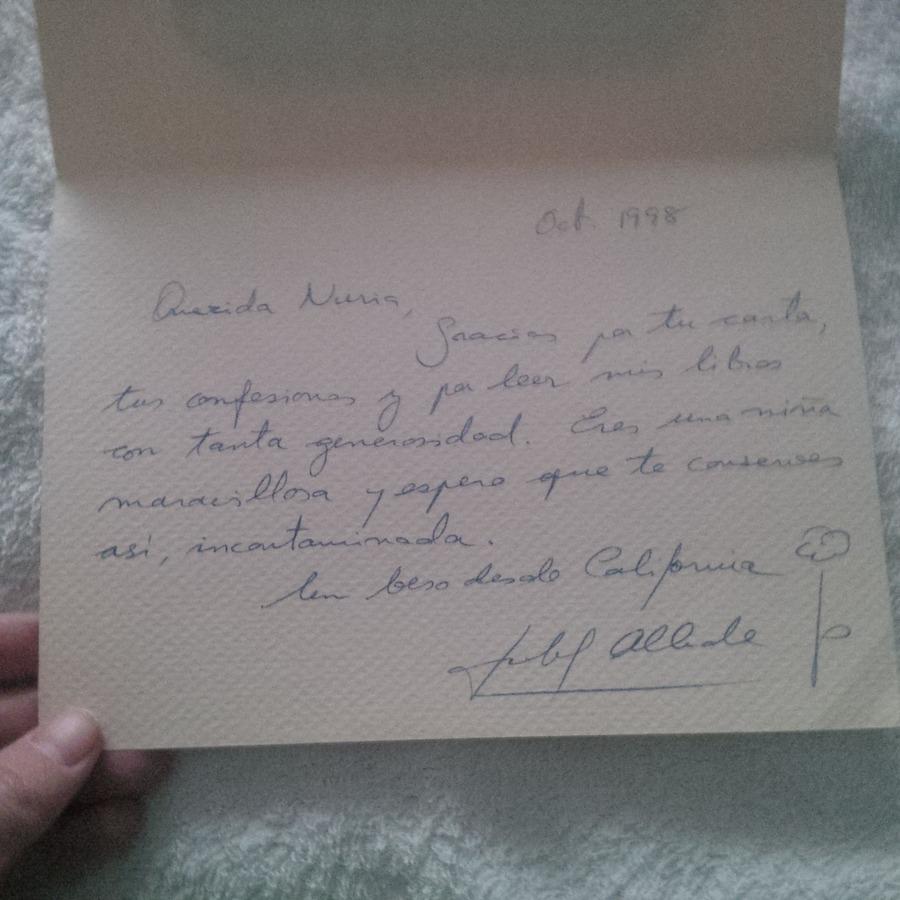 Oct. 1998
Querida Nuria,
Gracias por tu carta,
tus confesiones y por leer mis libros
con tanta generosidad. Eres una niña
maravillosa y espero que te conserves
así, incontaminada.
Un beso desde California
Isabel Allende